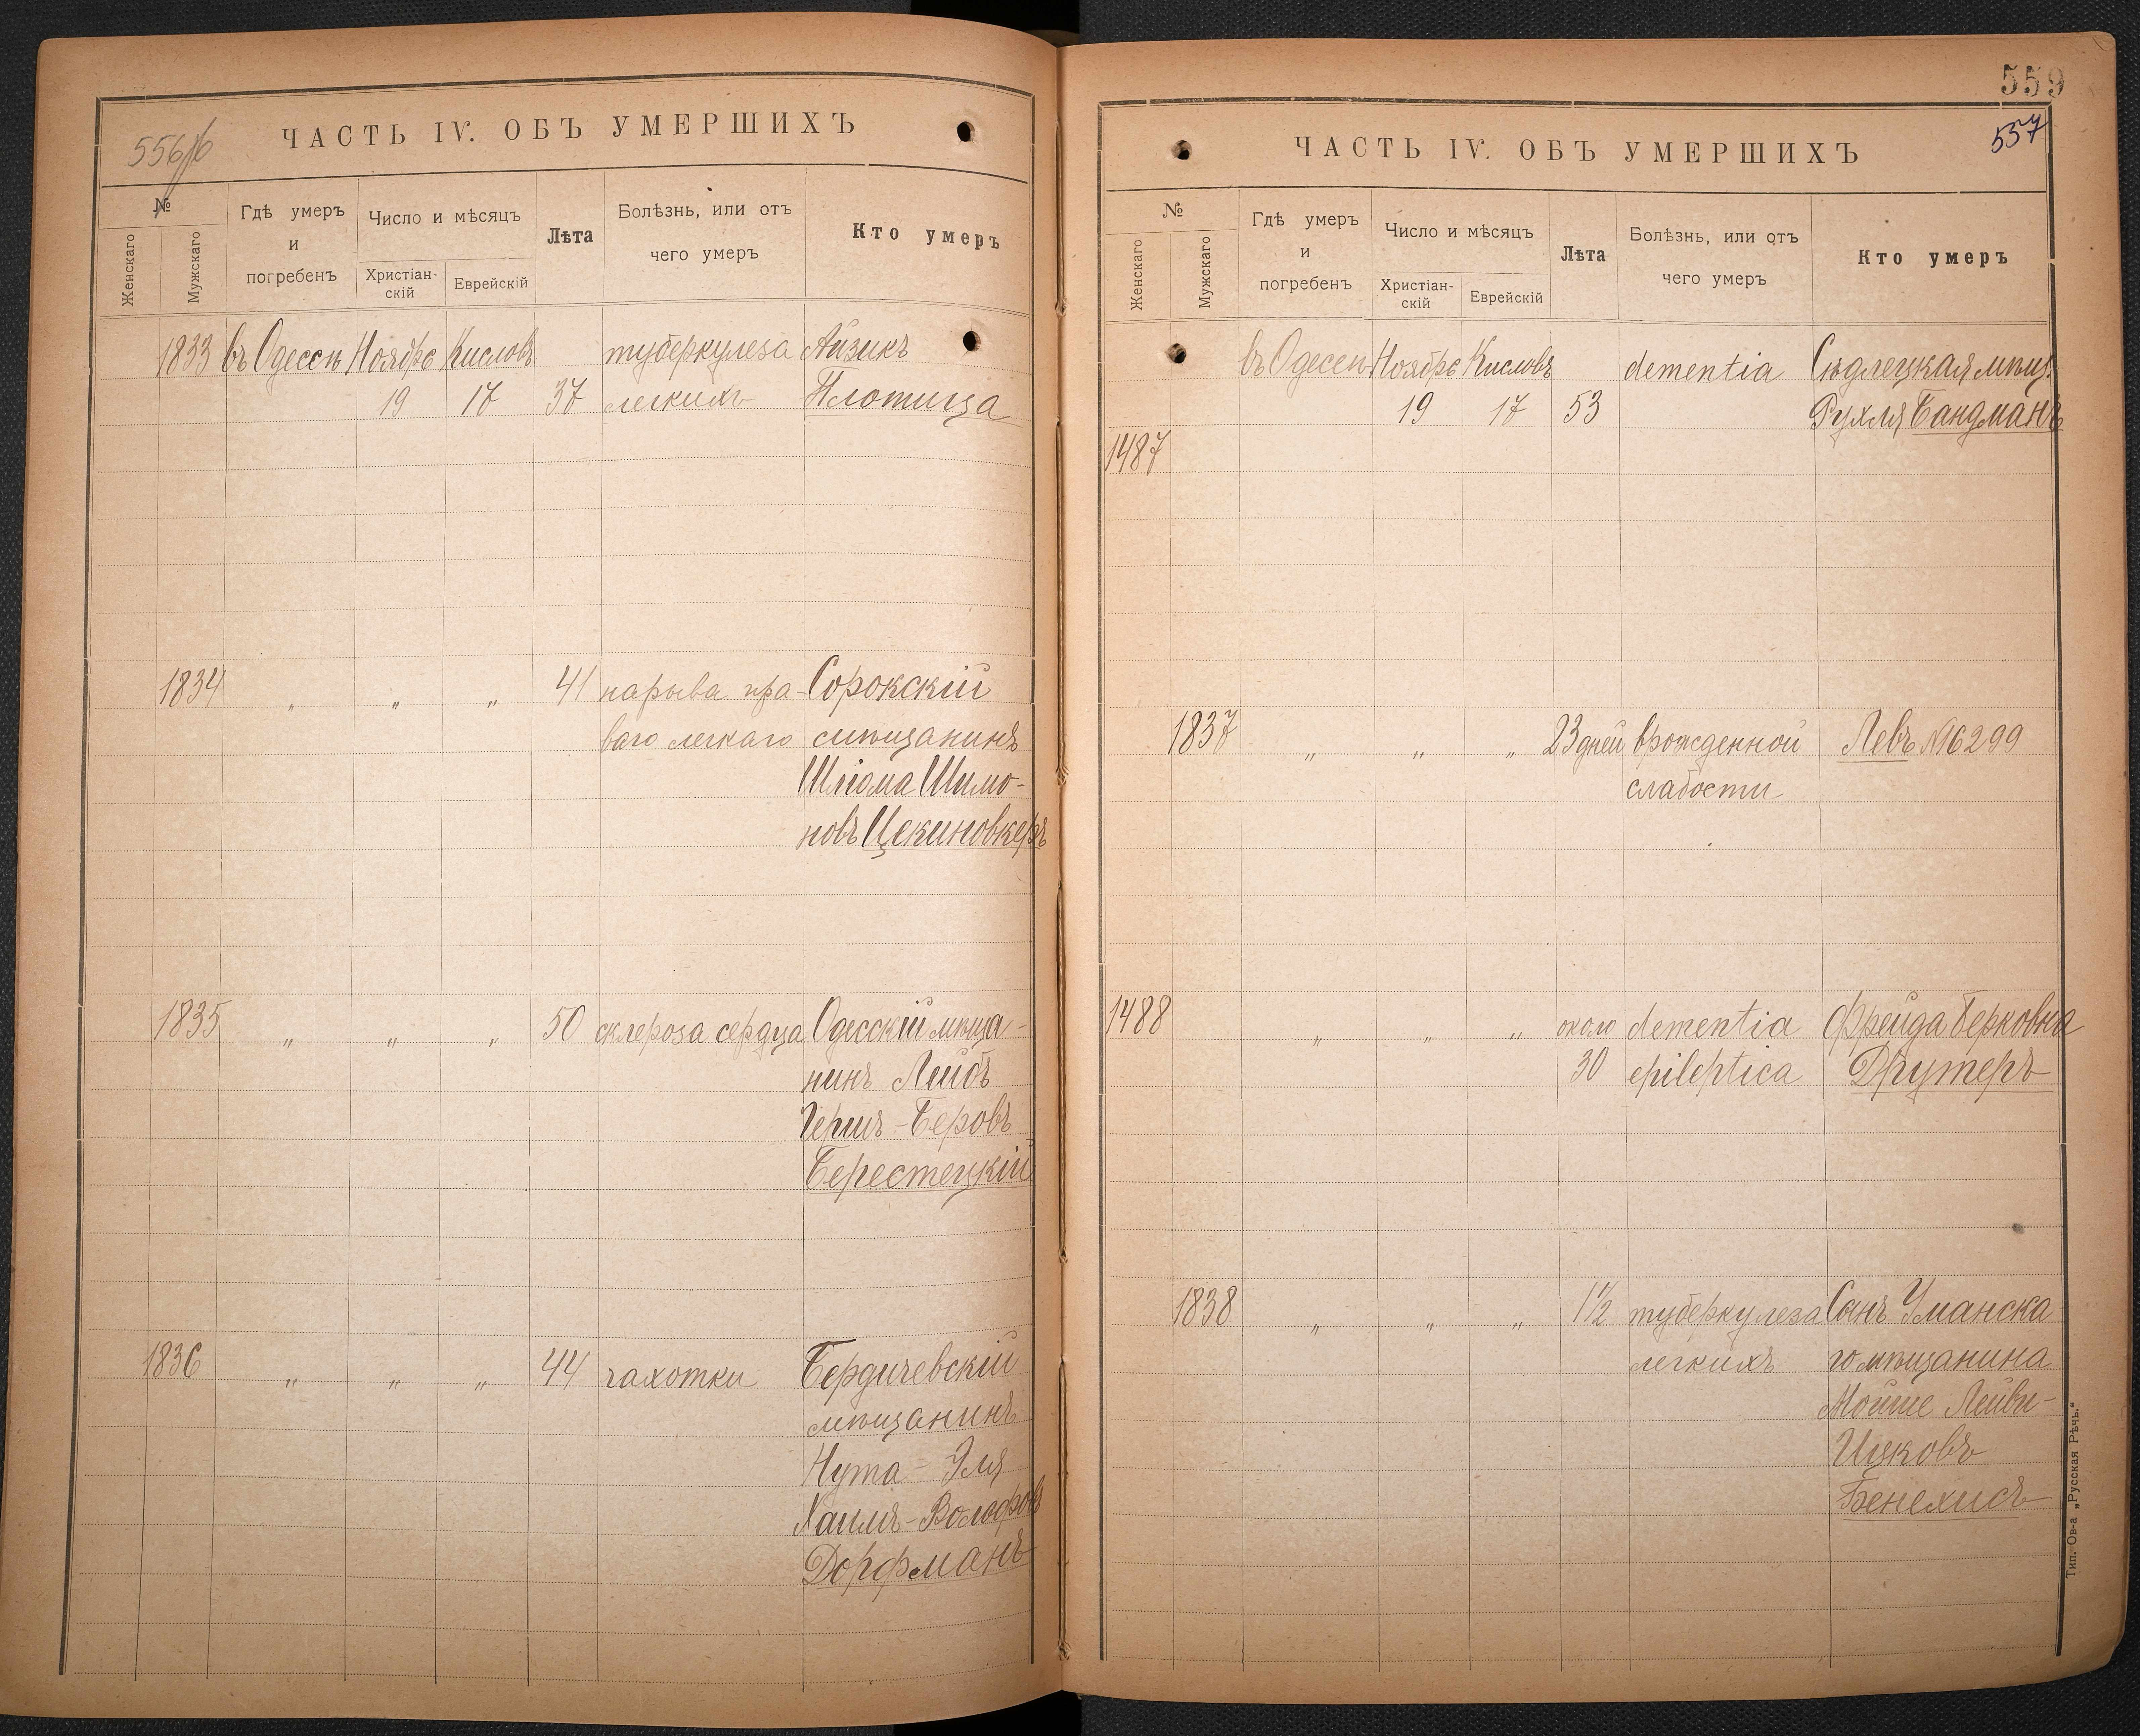 556/б
ЧАСТЬ IV. ОБЪ УМЕРШИХЪ
№
Женскаго
Мужскаго
Гдѣ умеръ
и
погребенъ
Число и мѣсяцъ
Христіан-
скій
Еврейскій
Лѣта
Болѣзнь, или отъ
чего умеръ
Кто умеръ
1833 въ Одессѣ Ноябрь Кисловъ туберкулеза Айзикъ
19 17 37 легкихъ Плотица
1834 „ „ „ 41 нарыва пра- Сорокскій
ваго легкаго мѣщанинъ
Шліома Шимо-
новъ Цекиновкеръ
1835 „ „ „ 50 склероза сердца Одесскій мѣща-
нинъ Лейбъ
Гершъ-Беровъ
Берестецкій
1836 „ „ „ 44 чахотки Бердичевскій
мѣщанинъ
Нута-Эля
Хаимъ-Вольфовъ
Дорфманъ
559
557
ЧАСТЬ IV. ОБЪ УМЕРШИХЪ
№
Женскаго
Мужскаго
Гдѣ умеръ
и
погребенъ
Число и мѣсяцъ
Христіан-
скій
Еврейскій
Лѣта
Болѣзнь, или отъ
чего умеръ
Кто умеръ
въ Одессѣ Ноябрь Кисловъ dementia Сѣдлецкая мѣщ.
19 17 53 Рухля Бандманъ
1487
1837 „ „ „ 23 дней врожденной Левъ №6299
слабости
1488 „ „ „ около dementia Фрейда Берковна
30 epileptica Друтеръ
1838 „ „ „ 1½ туберкулеза Сынъ Уманска-
легкихъ го мѣщанина
Мойше Лейви-
Ицковъ
Бенехисъ
Тип. Ов-а „Русская Рѣчь.“